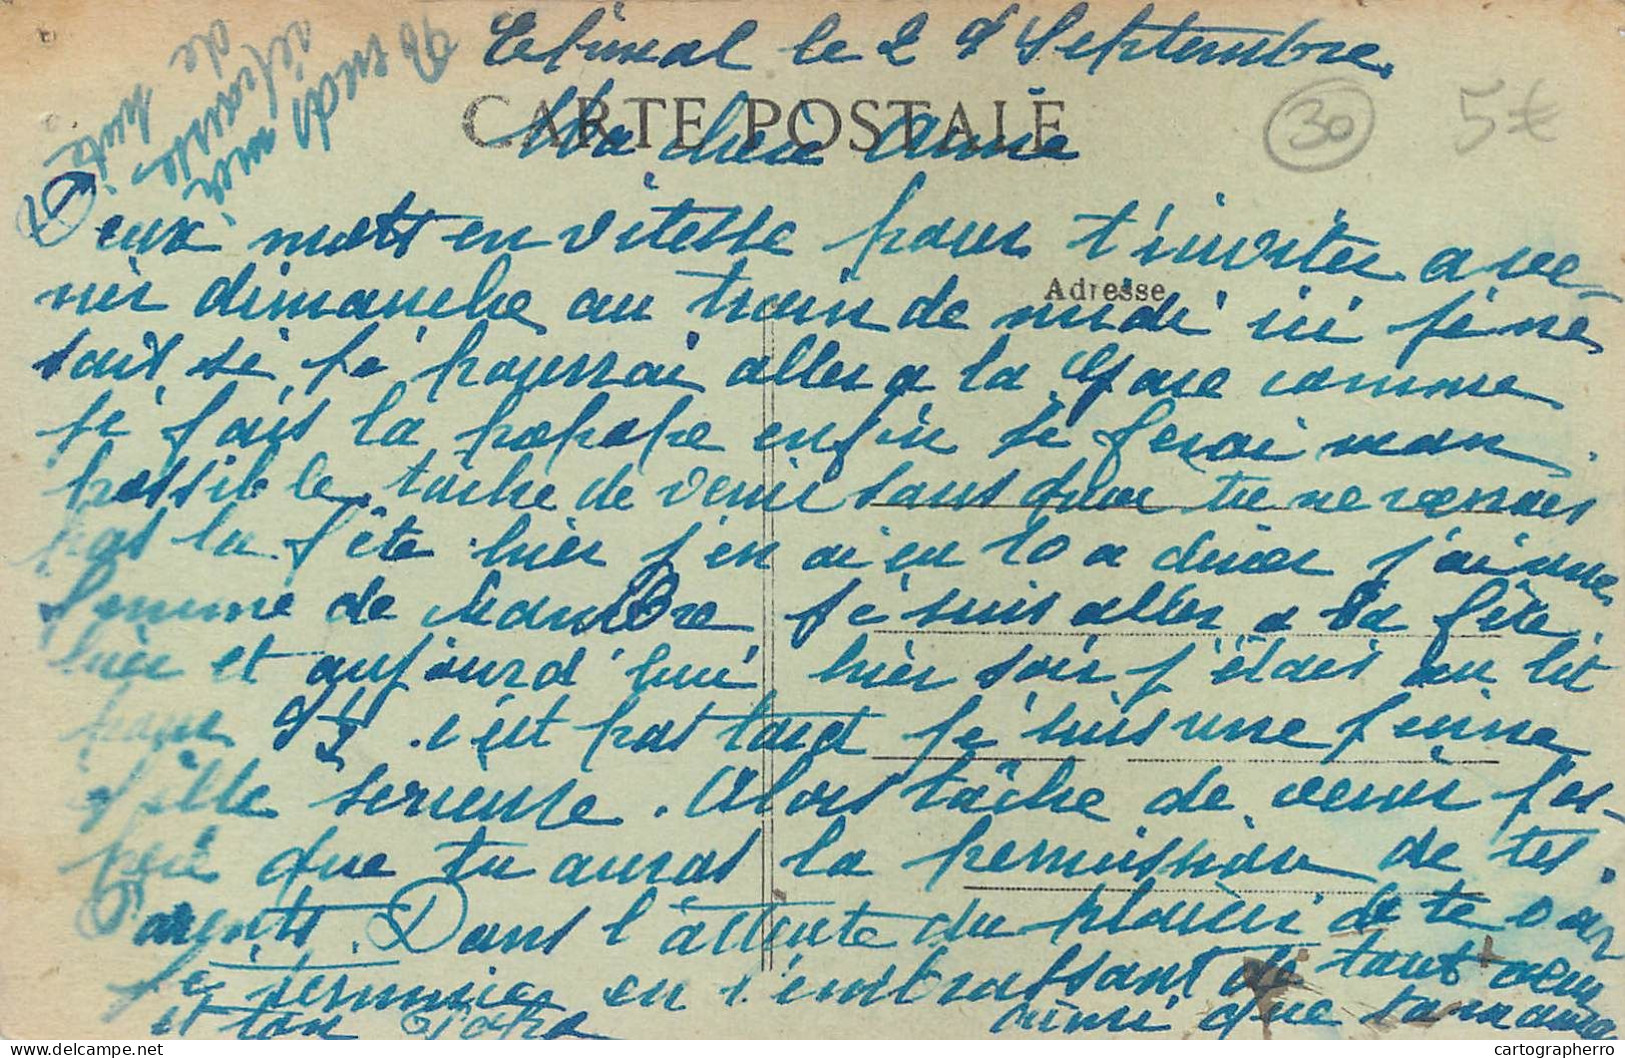 Epinal le 29 Septembre
CARTE POSTALE
Ma chère Anne
30
5€
Deux mots en vitesse pour t'inviter a ve-
nir dimanche au train de midi ici je ne
Adresse
sais si je pourrai aller a la Gare comme
je fais la popope enfin je ferai mon
possible, tache de venir sans que tu ne verrais
pas la fête hier j'en ai eu 10 a diner j'ai une
femme de Chambre je suis aller a la fête
hier et aujourd'hui hier soir j'étais au lit
pour 9½ c'est pas tard je suis une jeune
fille serieuse. Alors tâche de venir j'es-
père que tu auras la permission de tes
Parents. Dans l'attente du plaisir de te voir
je termine en t'embrassant de tout cœur
et ton Papa ainsi que ta maman
de toute
cartographerro